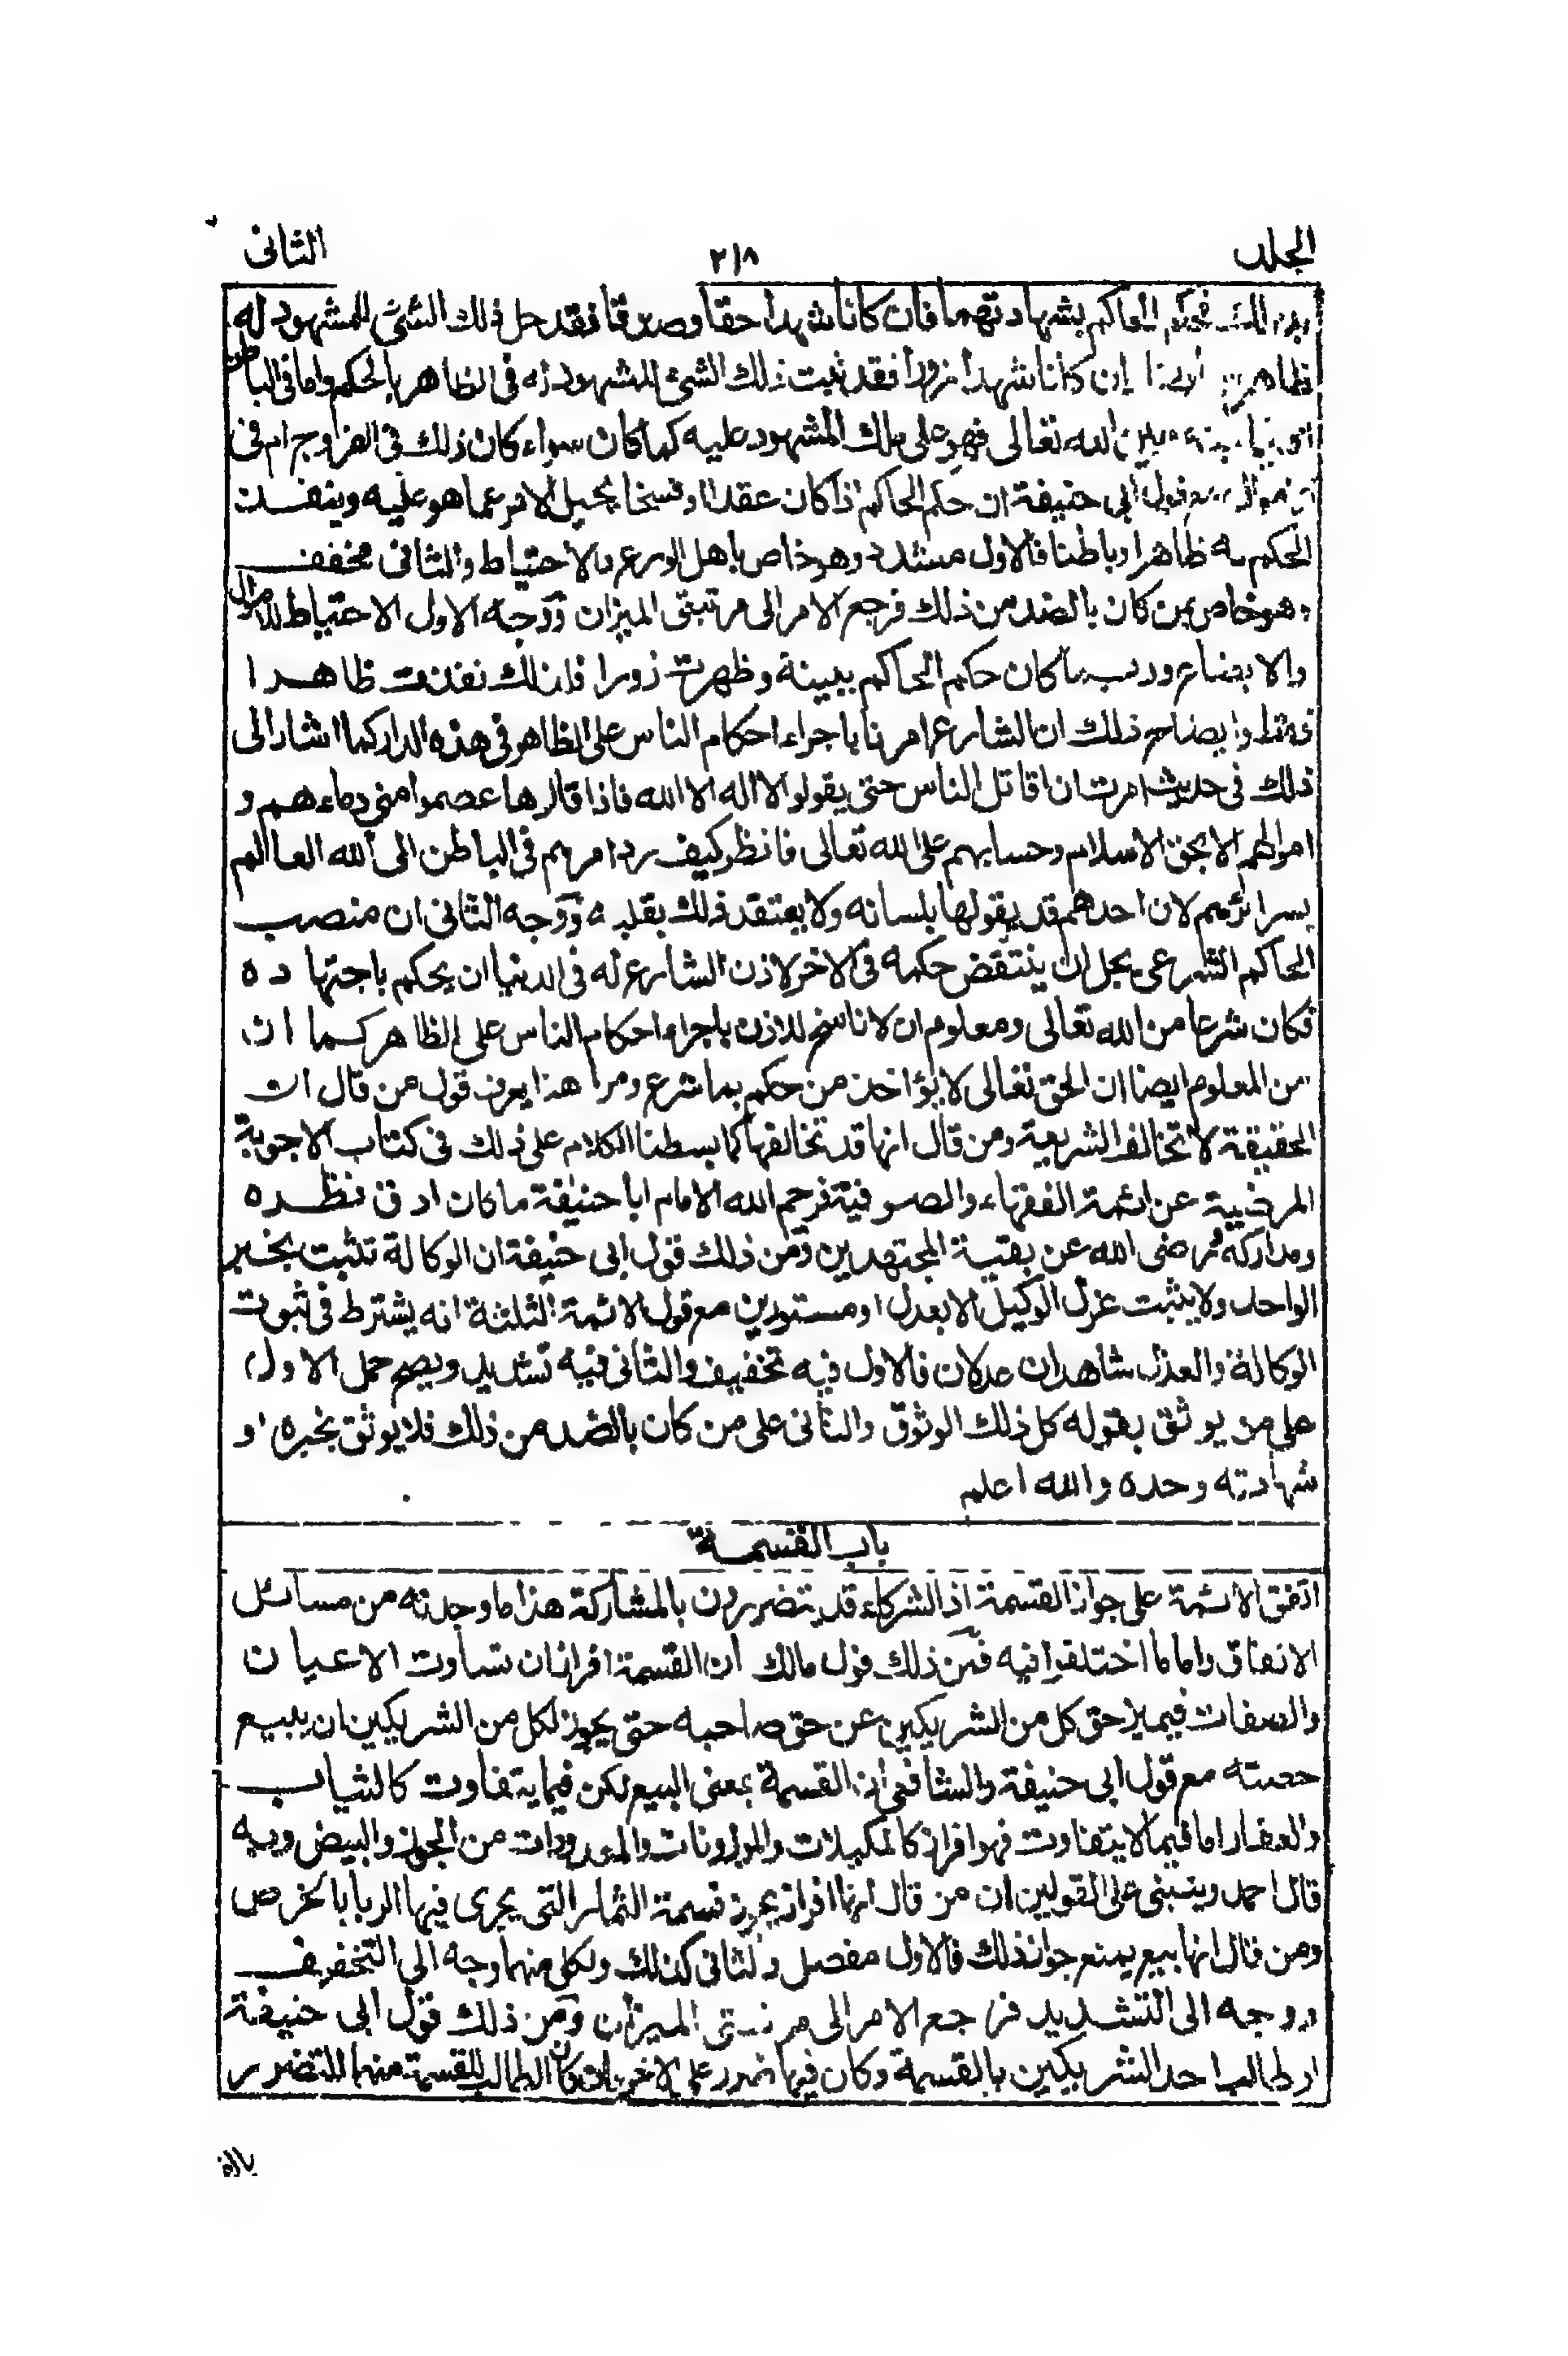 الجلد ٢١٨ الثانى
بذلك فحكم الحاكم بشهادتهما فان كانا شهدا حقا وصدقا فقد حل ذلك الشئ للمشهود له
ظاهرا ان كانا شهدا زورا فقد ثبت ذلك الشئ للمشهود له فى الظاهر بالحكم واما فى الباطن
بينه وبين الله تعالى فهو على ملك المشهود عليه كما كان سواء كان ذلك فى الفزاوج ام فى
قول ابى حنيفة ان حكم الحاكم اذا كان عقدا او فسخا يحيل الامر عما هو عليه وينفذ
الحكم به ظاهرا وباطنا فالاول مشدد وهو خاص باهل الورع والاحتياط والثانى مخفف
وهو خاص بمن كان بالضد من ذلك فرجع الامر الى مرتبتى الميزان ووجه الاول الاحتياط للاموال
والابضاع وربما كان حكم الحاكم ببينة وظهرت زورا فلذلك نفذت ظاهرا
فقط وايضاح ذلك ان الشارع امرنا باجراء احكام الناس على الظاهر فى هذه الدار كما اشار الى
ذلك فى حديث امرت ان اقاتل الناس حتى يقولوا لا اله الا الله فاذا قالوها عصموا منى دماءهم و
اموالهم الا بحق الاسلام وحسابهم على الله تعالى فانظر كيف رد امرهم فى الباطن الى الله العالم
بسرائرهم لان احدهم قد يقولها بلسانه ولا يعتقد ذلك بقلبه ووجه الثانى ان منصب
الحاكم الشرعى يجل ان ينتقض حكمه فى الاخرة لاذن الشارع له فى الدنيا ان يحكم باجتهاده
فكان شرعا من الله تعالى ومعلوم ان لا ناسخ للاذن باجراء احكام الناس على الظاهر كما ان
من المعلوم ايضا ان الحق تعالى لا يؤاخذ من حكم بما شرع ومن هذا يعرف قول من قال ان
الحقيقة لا تخالف الشريعة ومن قال انها قد تخالفها كما بسطنا الكلام على ذلك فى كتاب الاجوبة
المرضية عن ائمة الفقهاء والصوفية فرحم الله الامام ابا حنيفة ما كان ادق نظره
ومداركه ورضى الله عن بقية المجتهدين ومن ذلك قول ابى حنيفة ان الوكالة تثبت بخبر
الواحد ولا يثبت عزل الوكيل الا بعدل او مستورين مع قول الائمة الثلثة انه يشترط فى ثبوت
الوكالة والعذل شاهدان عدلان فالاول فيه تخفيف والثانى فيه تشديد ويصح حمل الاول
على من يوثق بقوله كل ذلك الوثوق والثانى على من كان بالضد من ذلك فلا يوثق بخبره او
شهادته وحده والله اعلم
باب القسمة
اتفق الائمة على جواز القسمة اذ الشركاء قد يتضررون بالمشاركة هذا ما وجدته من مسائل
الاتفاق واما ما اختلفوا فيه فمن ذلك قول مالك ان القسمة افراز ان تساوت الاعيان
والصفات فيميز حق كل من الشريكين عن حق صاحبه حتى يجوز لكل من الشريكين ان يبيع
حصته مع قول ابى حنيفة والشافعى ان القسمة بمعنى البيع لكن فيما يتفاوت كالثياب
والعقار اما فيما لا يتفاوت فهو افراز كالمكيلات والموزونات والمعدودات من الجوز والبيض وبه
قال احمد وينبنى على القولين ان من قال انها افراز يجوز قسمة الثمار التى يجرى فيها الربا بالخرص
ومن قال انها بيع يمنع جواز ذلك فالاول مفصل والثانى كذلك ولكل منهما وجه الى التخفيف
ووجه الى التشديد فرجع الامر الى مرتبتى الميزان ومن ذلك قول ابى حنيفة
ان طالب احد الشريكين بالقسمة وكان فيها ضرر على الاخر فان كان الطالب للقسمة منهما المتضرر